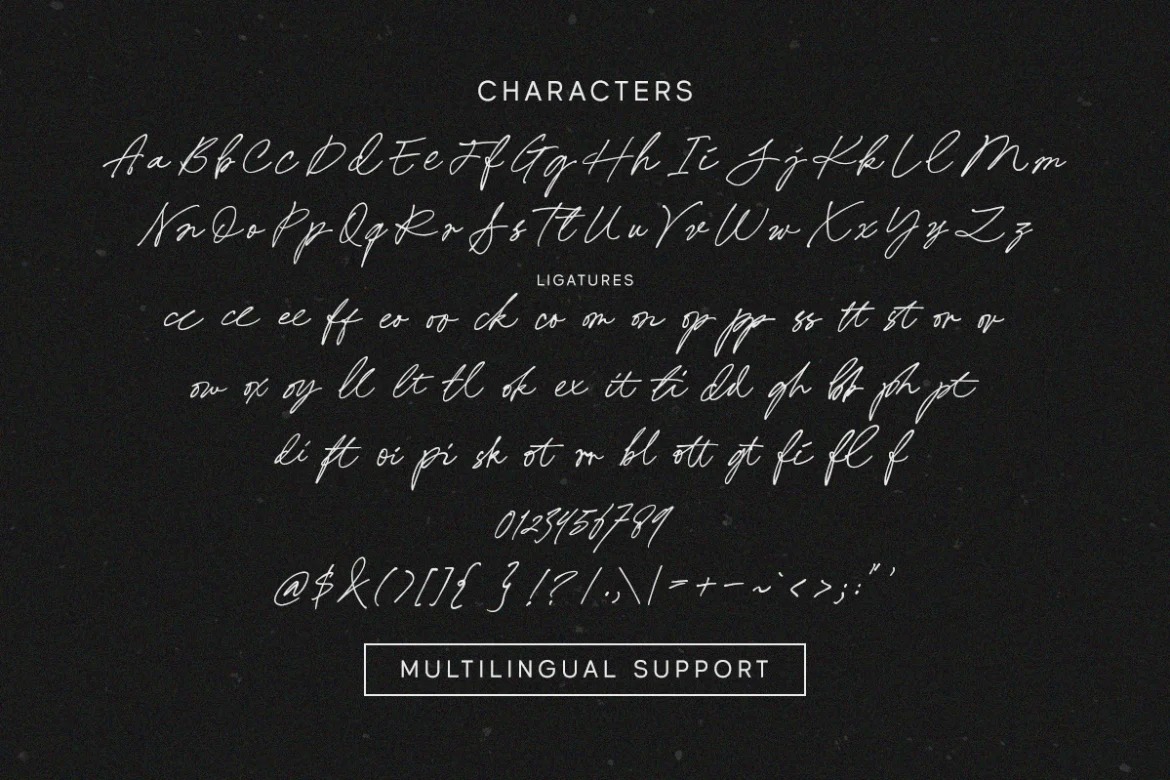 CHARACTERS
Aa Bb Cc Dd Ee Ff Gg Hh Ii Jj Kk Ll Mm
Nn Oo Pp Qq Rr Ss Tt Uu Vv Ww Xx Yy Zz
LIGATURES
cc cl ee ff eo oo ck co om on op pp ss tt st or ov
ow ox oy ll lt tl ok ex it ti dd gh bb ph pt
di ft oi pi sk ot rr bl ott gt fi fl f
0123456789
@$&()[]{ }!?/.,\|=+-~`<>;:"'
MULTILINGUAL SUPPORT